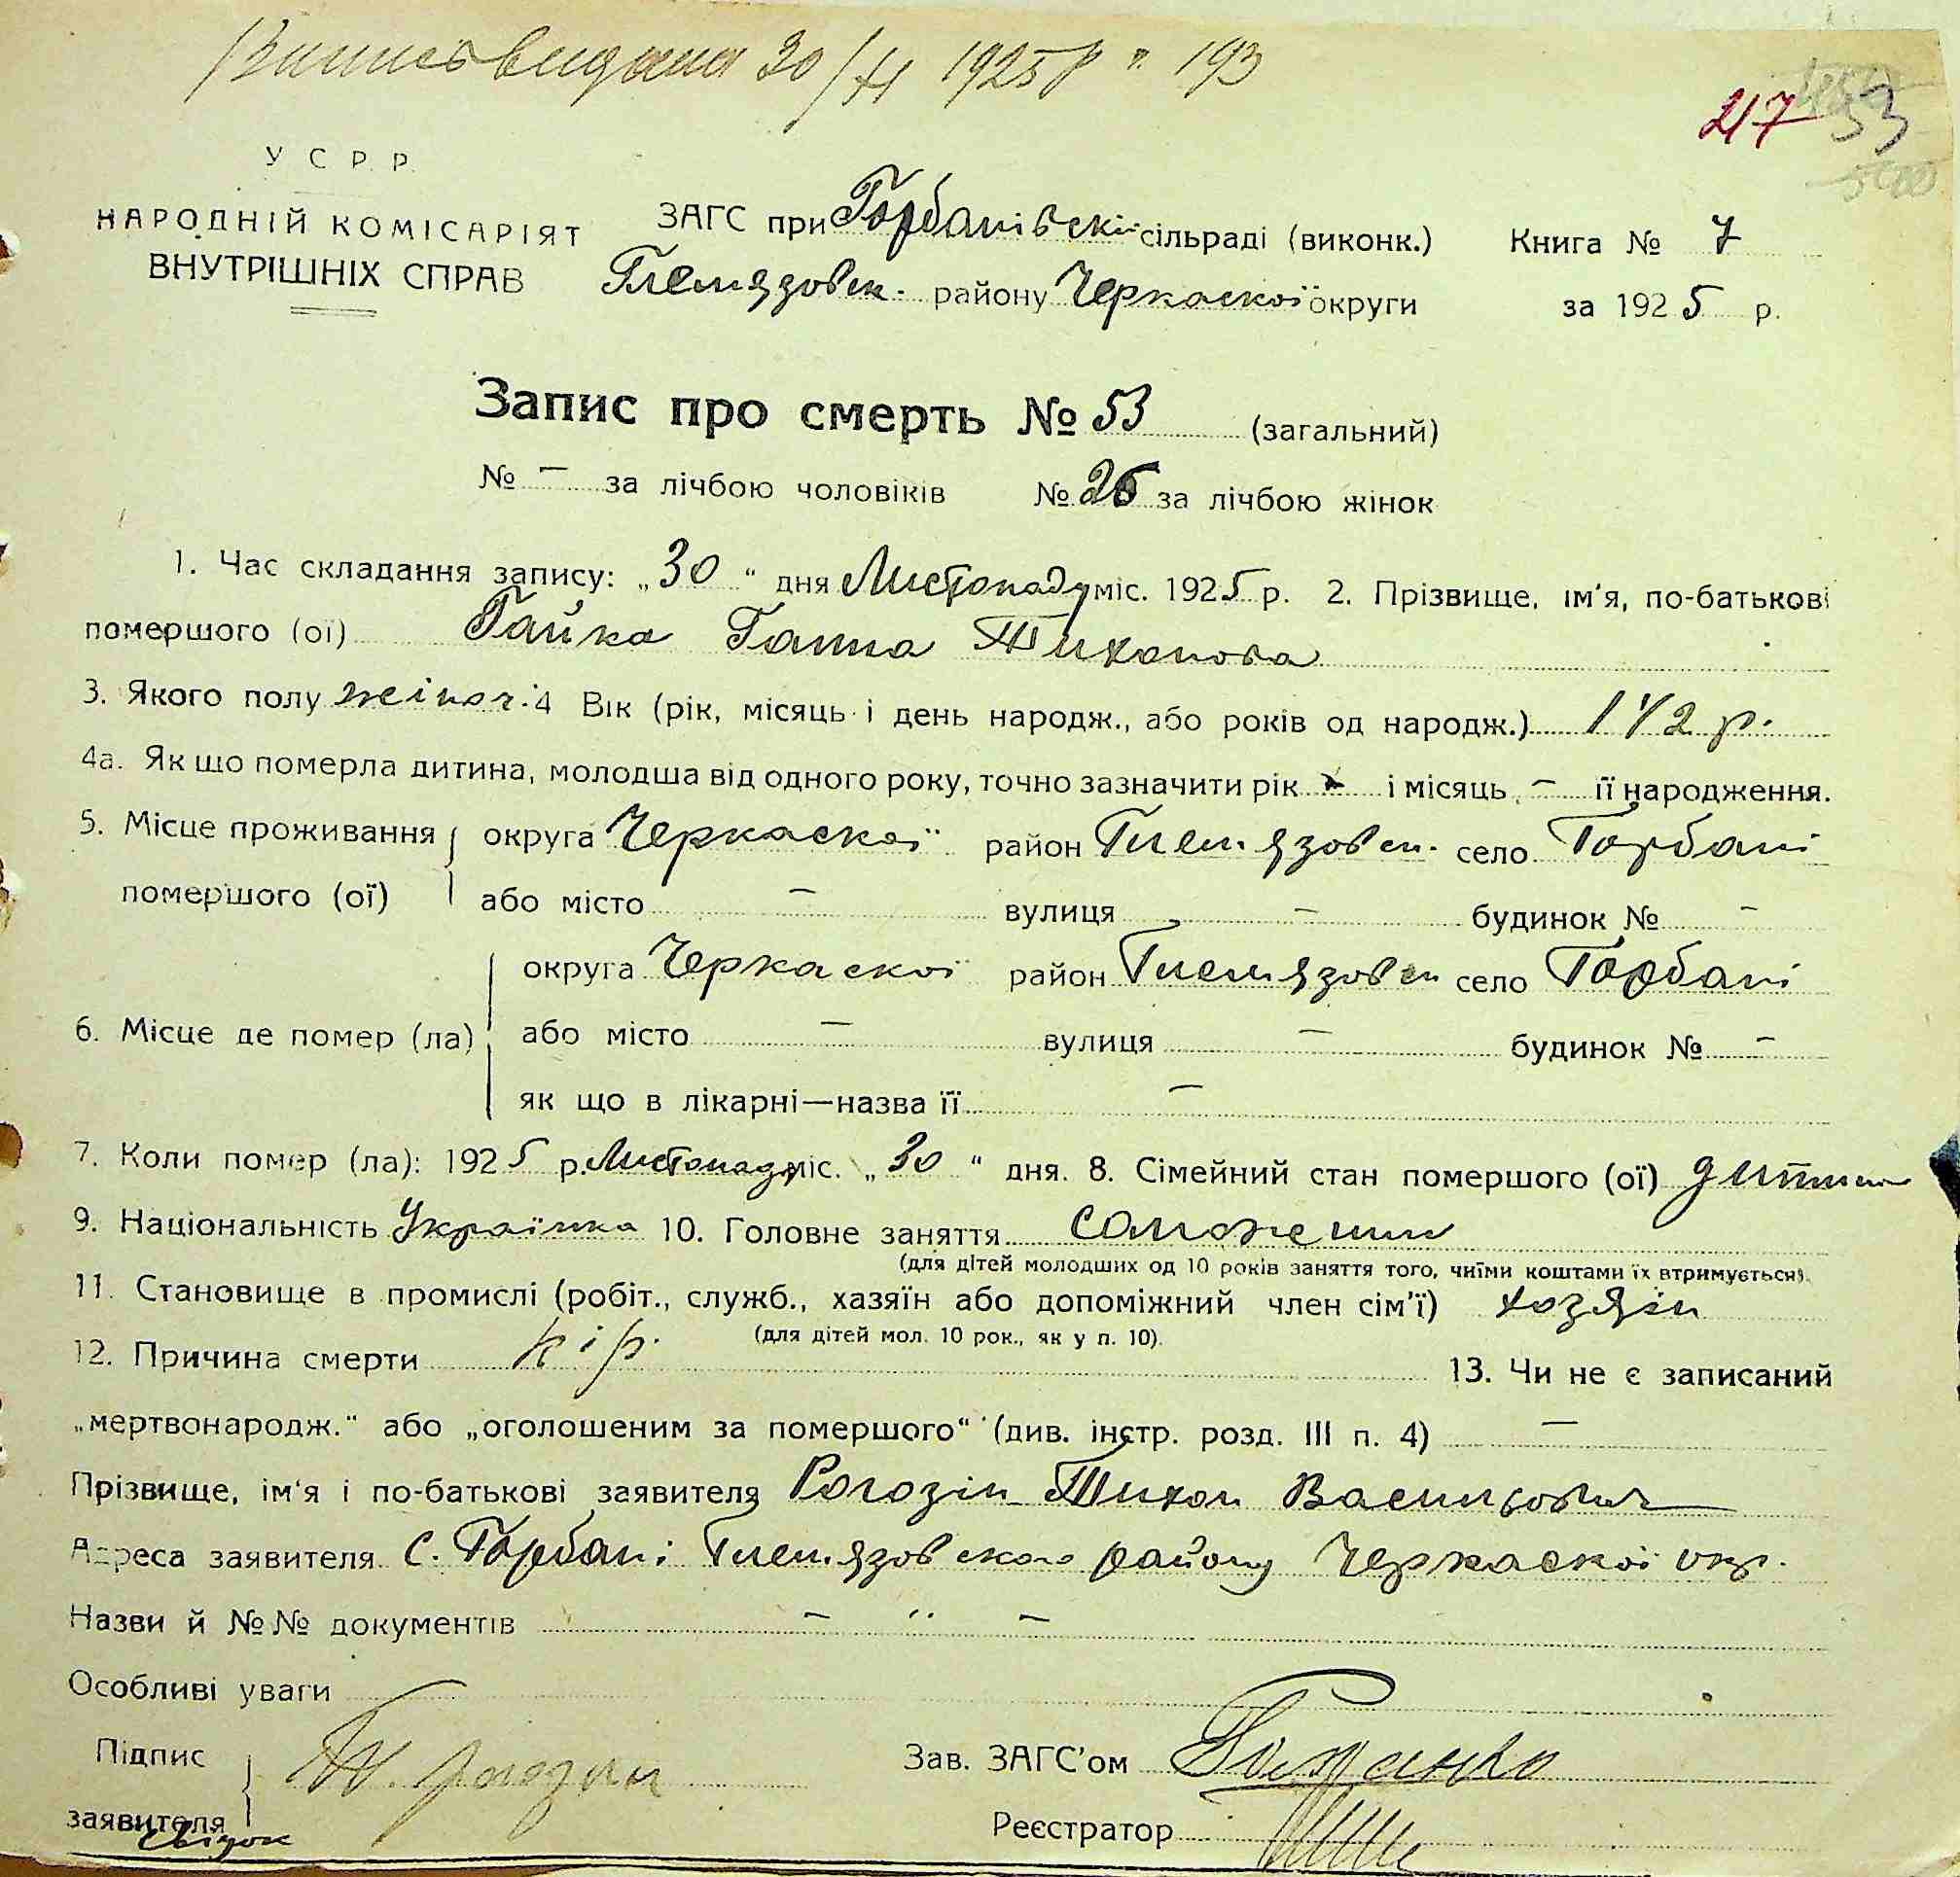 Випись видана 30/XI 1925 р № 193
217 53
У С Р Р.
НАРОДНІЙ КОМІСАРІЯТ
ВНУТРІШНІХ СПРАВ
ЗАГС при Горбанівській сільраді (виконк.) Книга № 7
Гнемязовск. району Черкаскої округи за 1925 р.
Запис про смерть № 53 (загальний)
№ – за лічбою чоловіків № 26 за лічбою жінок
1. Час складання запису: „30“ дня Листопаду міс. 1925 р. 2. Прізвище, ім'я, по-батькові
помершого (ої) Гайка Ганна Тиханова
3. Якого полу жіноч. 4 Вік (рік, місяць і день народж., або років од народж.) 1 1/2 р.
4а. Як що померла дитина, молодша від одного року, точно зазначити рік – і місяць – її народження.
5. Місце проживання помершого (ої) округа Черкаскої район Гнемязовск. село Горбані
або місто – вулиця – будинок № –
6. Місце де помер (ла) округа Черкаскої район Гнемязовск село Горбані
або місто – вулиця – будинок № –
як що в лікарні—назва її –
7. Коли помер (ла): 1925 р. Листопаду міс. „30“ дня. 8. Сімейний стан помершого (ої) дитина
9. Національність Українка 10. Головне заняття
(для дітей молодших од 10 років заняття того, чиїми коштами їх втримується).
11. Становище в промислі (робіт., служб., хазяїн або допоміжний член сім'ї) хозяїн
(для дітей мол. 10 рок., як у п. 10).
12. Причина смерти кір. 13. Чи не є записаний
„мертвонародж.“ або „оголошеним за помершого“ (див. інстр. розд. III п. 4) –
Прізвище, ім'я і по-батькові заявителя Рогозін Тихон Васильович
Адреса заявителя с. Горбані Гнемязовского району Черкаскої окр.
Назви й №№ документів – „ –
Особливі уваги
Підпис заявителя Т. Рогозін
Зав. ЗАГС'ом
свідок
Реєстратор